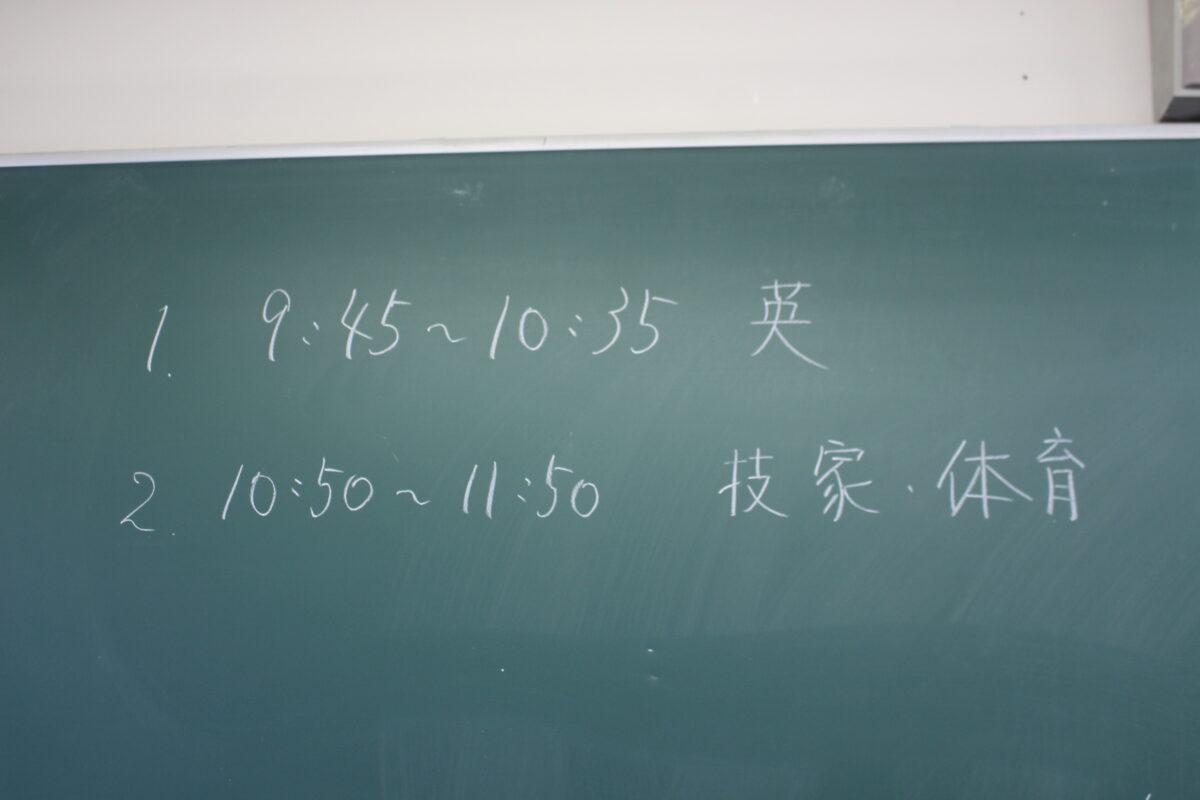 1. 9:45~10:35 英
2. 10:50~11:50 技家・体育